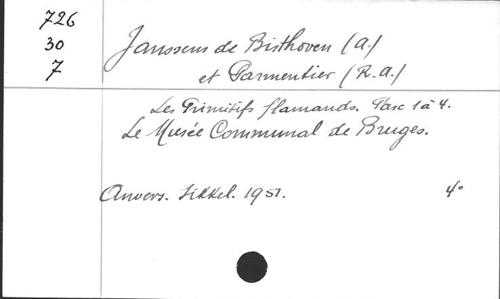 726
30
7
Janssens de Bisthoven (A.)
et Parmentier (R.A.)
Les Primitifs flamands. Fasc 1 à 4.
Le Musée Communal de Bruges.
Anvers. Sikkel. 1951. 4°